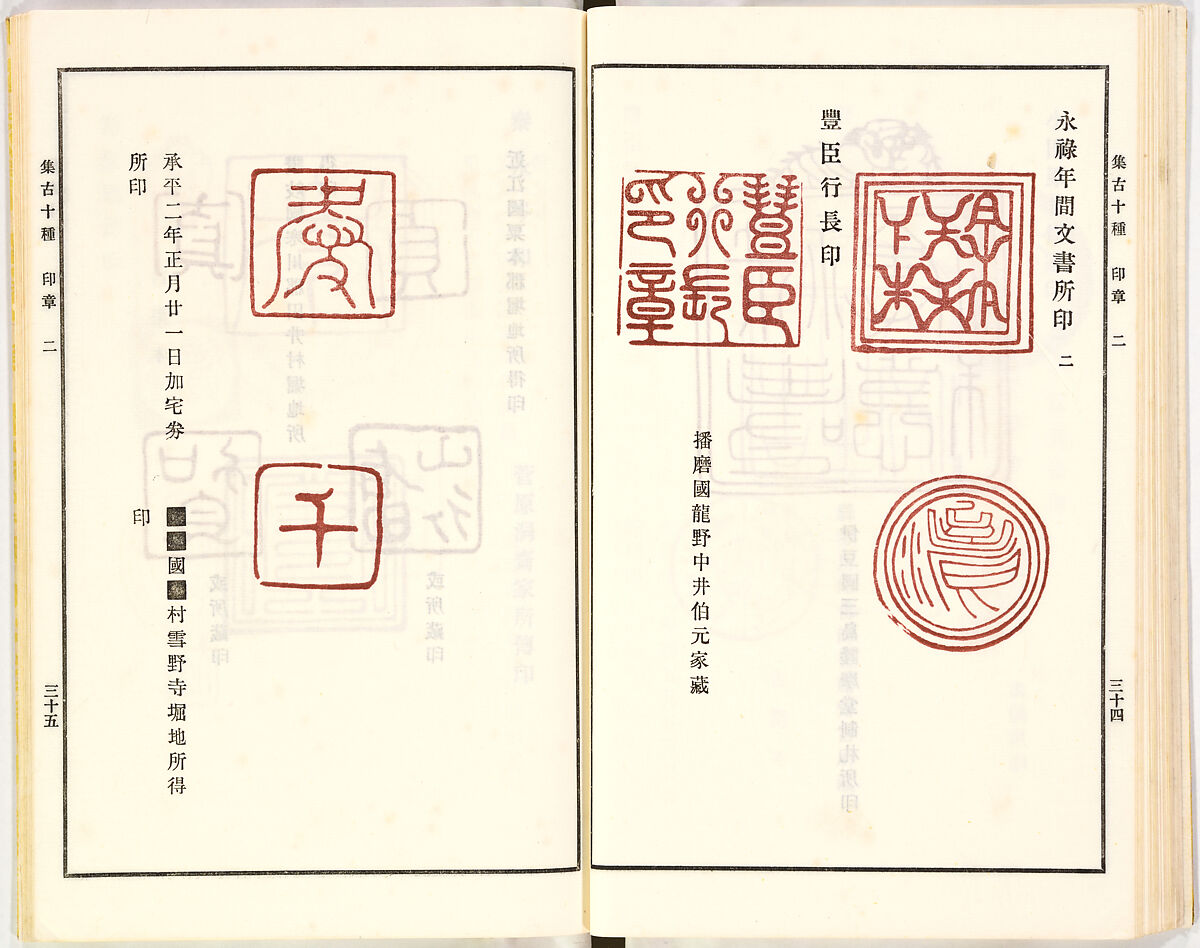 集古十種 印章 二
三十四
永祿年間文書所印 二
豐臣行長印
豐臣行長印章
播磨國龍野中井伯元家藏
承平二年正月廿一日加宅劵
所印
千
■■國■村雪野寺堀地所得
印
集古十種 印章 二
三十五